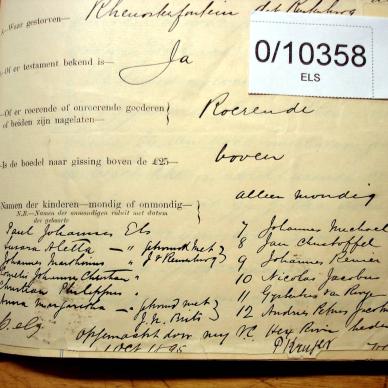 —Waar gestorven— Rhenosterfontein dist Rustenburg
0/10358
ELS
—Of er testament bekend is— Ja
—Of er roerende of onroerende goederen
of beiden zijn nagelaten— Roerende
—Is de boedel naar gissing boven de £25— boven
Namen der kinderen—mondig of onmondig— allen mondig
N.B.—Namen der onmondigen voluit met datum
der geboorte
Paul Johannes Els
Susara Aletta — " getrouwd met
Johannes Marthinus " J. v Rensburg
Cornelis Johannes Christiaan "
Christian Philippus "
Anna Margaretha — " getrouwd met
J. N. Brits
7 Johannes Michael
8 Jan Christoffel
9 Johannes Renier
10 Nicolas Jacobus
11 Gysbertus van
12 Andries Petrus Jacobus
Opgemaakt door my VC Hex Rivier heden
1 Oct 1895
P Kruger